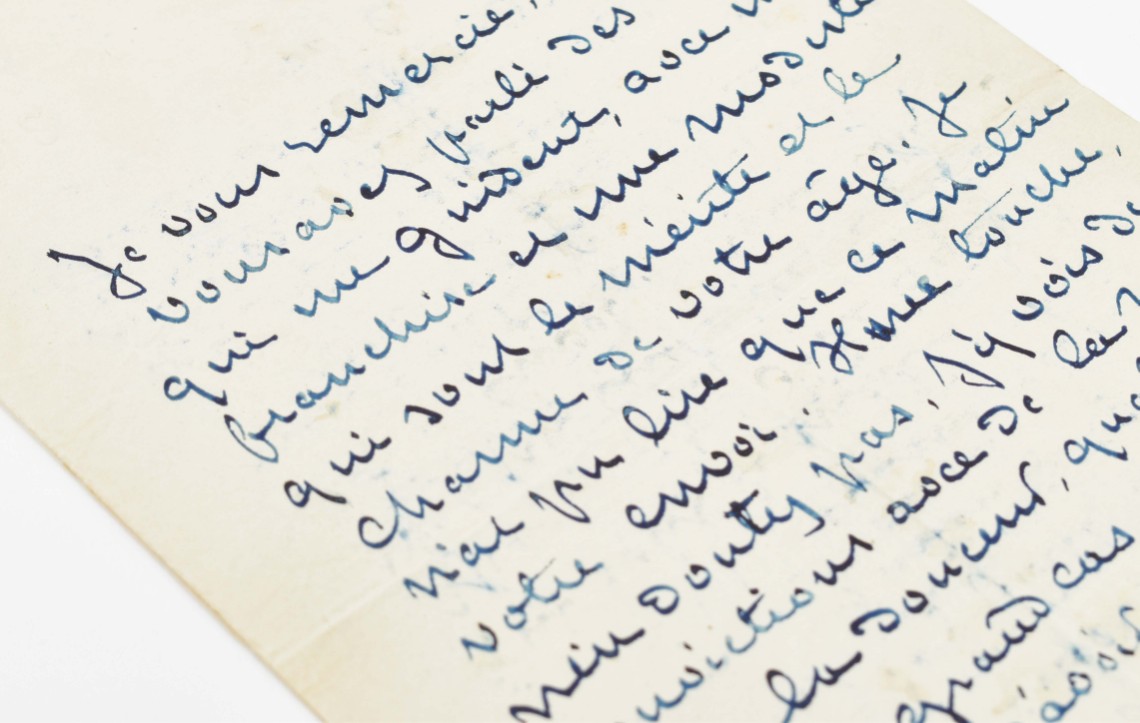 Je vous remercie,
vous avez parlé des
qui me guident, avec
franchise et une
qui sont le mérite et le
charme de votre âge. Je
n'ai pu lire que ce matin
votre envoi. Il me touche,
n'en doutez pas. J'y vois
avec de la
la douceur,
grand cas